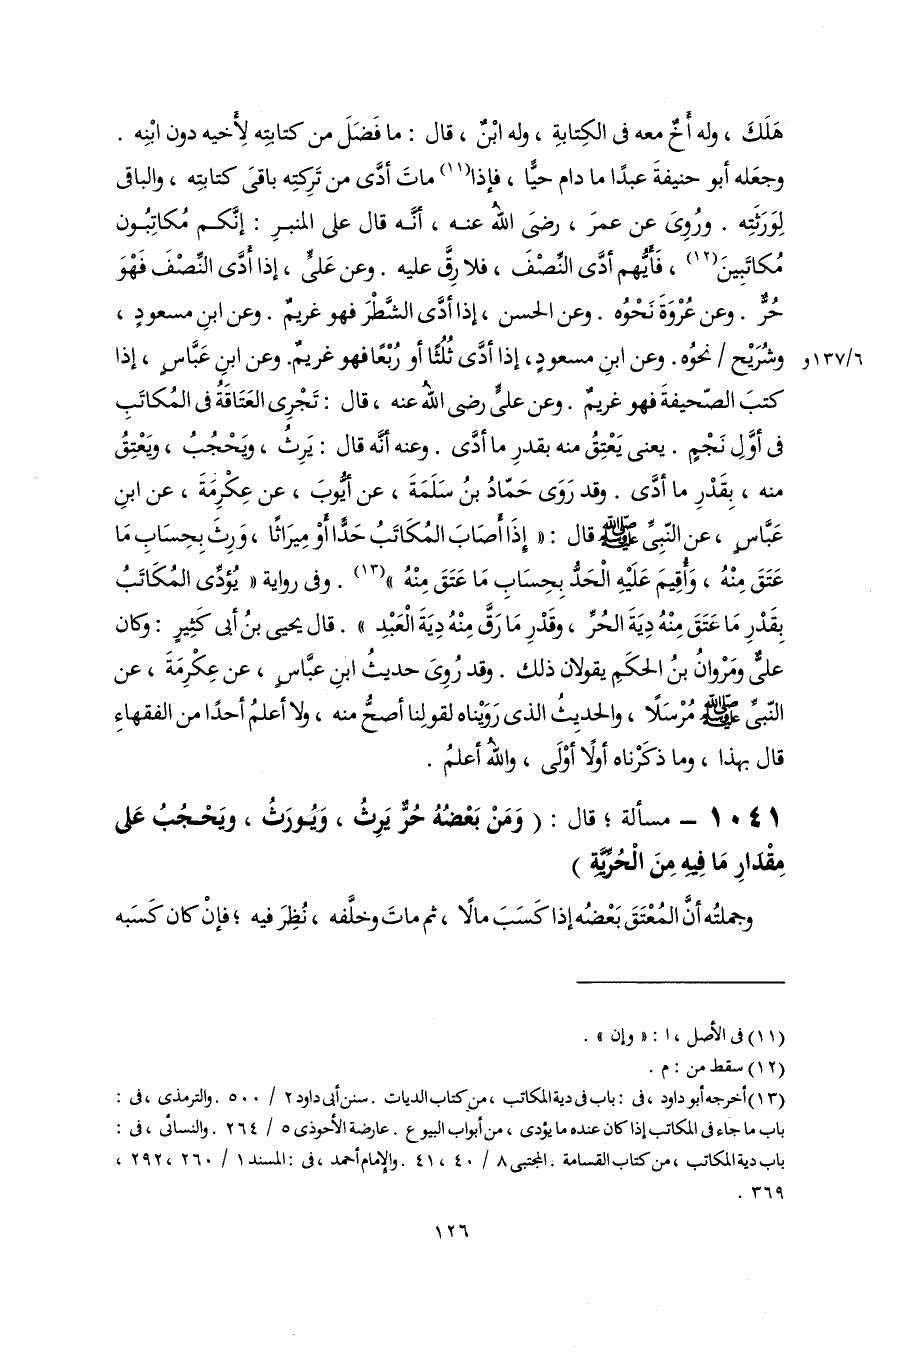 هَلَكَ ، وله أَخٌ معه فى الكِتابةِ ، وله ابْنٌ ، قال : ما فَضَلَ من كتابتِه لِأَخيه دون ابْنِه .
وجعَله أبو حنيفةَ عبدًا ما دام حيًّا ، فإذا(١١) ماتَ أدَّى من تَرِكتِه باقىَ كتابتِه ، والباقى
لِوَرَثَتِه . ورُوِىَ عن عمرَ ، رضىَ اللهُ عنه ، أنَّه قال على المنبرِ : إنَّكم مُكاتِبُون
مُكاتَبِينَ(١٢) ، فَأَيُّهم أدَّى النِّصْفَ ، فلا رِقَّ عليه . وعن علىٍّ ، إذا أدَّى النِّصْفَ فَهْوَ
حُرٌّ . وعن عُرْوَةَ نَحْوُه . وعن الحسن ، إذا أدَّى الشَّطْرَ فهو غريمٌ . وعن ابنِ مسعودٍ ،
وشُرَيْحٍ / نحوُه. وعن ابنِ مسعودٍ، إذا أدَّى ثُلُثًا أو رُبْعًا فهو غريمٌ. وعن ابنِ عَبَّاسٍ ، إذا ١٣٧/٦و
كتبَ الصّحيفةَ فهو غريمٌ . وعن علىٍّ رضى اللهُ عنه ، قال : تَجْرِى العَتاقَةُ فى المُكاتَبِ
فى أوَّلِ نَجْمٍ . يعنى يَعْتِقُ منه بقدرِ ما أدَّى . وعنه أنَّه قال : يَرِثُ ، ويَحْجُبُ ، ويَعْتِقُ
منه ، بِقَدْرِ ما أدَّى . وقد رَوَى حَمّادُ بنُ سَلَمَةَ ، عن أيُّوبَ ، عن عِكْرِمَةَ ، عن ابنِ
عَبَّاسٍ ، عن النّبِىِّ ﷺ قال : « إِذَا أصَابَ المُكَاتَبُ حَدًّا أَوْ مِيرَاثًا ، وَرِثَ بِحِسَابِ مَا
عَتَقَ مِنْهُ ، وَأُقِيمَ عَلَيْهِ الْحَدُّ بِحِسَابِ مَا عَتَقَ مِنْهُ »(١٣) . وفى رواية « يُؤدِّى المُكَاتَبُ
بِقَدْرِ مَا عَتَقَ مِنْهُ دِيَةَ الحُرِّ ، وقَدْرِ مَا رَقَّ مِنْهُ دِيَةَ الْعَبْدِ » . قال يحيى بنُ أبى كَثِيرٍ : وكان
علىٌّ ومَرْوانُ بنُ الحكَمِ يقولان ذلك . وقد رُوِىَ حديثُ ابنِ عبَّاسٍ ، عن عِكْرِمَةَ ، عن
النّبِىِّ ﷺ مُرْسَلًا ، والحديثُ الذى رَوَيْناه لقولِنا أصحُّ منه ، ولا أعلمُ أحدًا من الفقهاءِ
قال بهذا ، وما ذكَرْناه أولًا أوْلَى ، واللهُ أعلمُ .
١٠٤١ – مسألة ؛ قال : ( وَمَنْ بَعْضُهُ حُرٌّ يَرِثُ ، وَيُورَثُ ، ويَحْجُبُ عَلى
مِقْدَارِ مَا فِيهِ مِنَ الْحُرِّيَّةِ )
وجملتُه أنَّ المُعْتَقَ بَعْضُه إذا كَسَبَ مالًا ، ثم ماتَ وخلَّفه ، نُظِرَ فيه ؛ فإنْ كان كَسَبه
(١١) فى الأصل ، ا : « وإن » .
(١٢) سقط من : م .
(١٣) أخرجه أبو داود ، فى : باب فى دية المكاتب ، من كتاب الديات . سنن أبى داود ٢ / ٥٠٠ . والترمذى ، فى :
باب ما جاء فى المكاتب إذا كان عنده ما يؤدى ، من أبواب البيوع . عارضة الأحوذى ٥ / ٢٦٤ . والنسائى ، فى :
باب دية المكاتب ، من كتاب القسامة . المجتبى ٨ / ٤٠ ، ٤١ . والإمام أحمد ، فى : المسند ١ / ٢٦٠ ، ٢٩٢ ،
٣٦٩ .
١٢٦